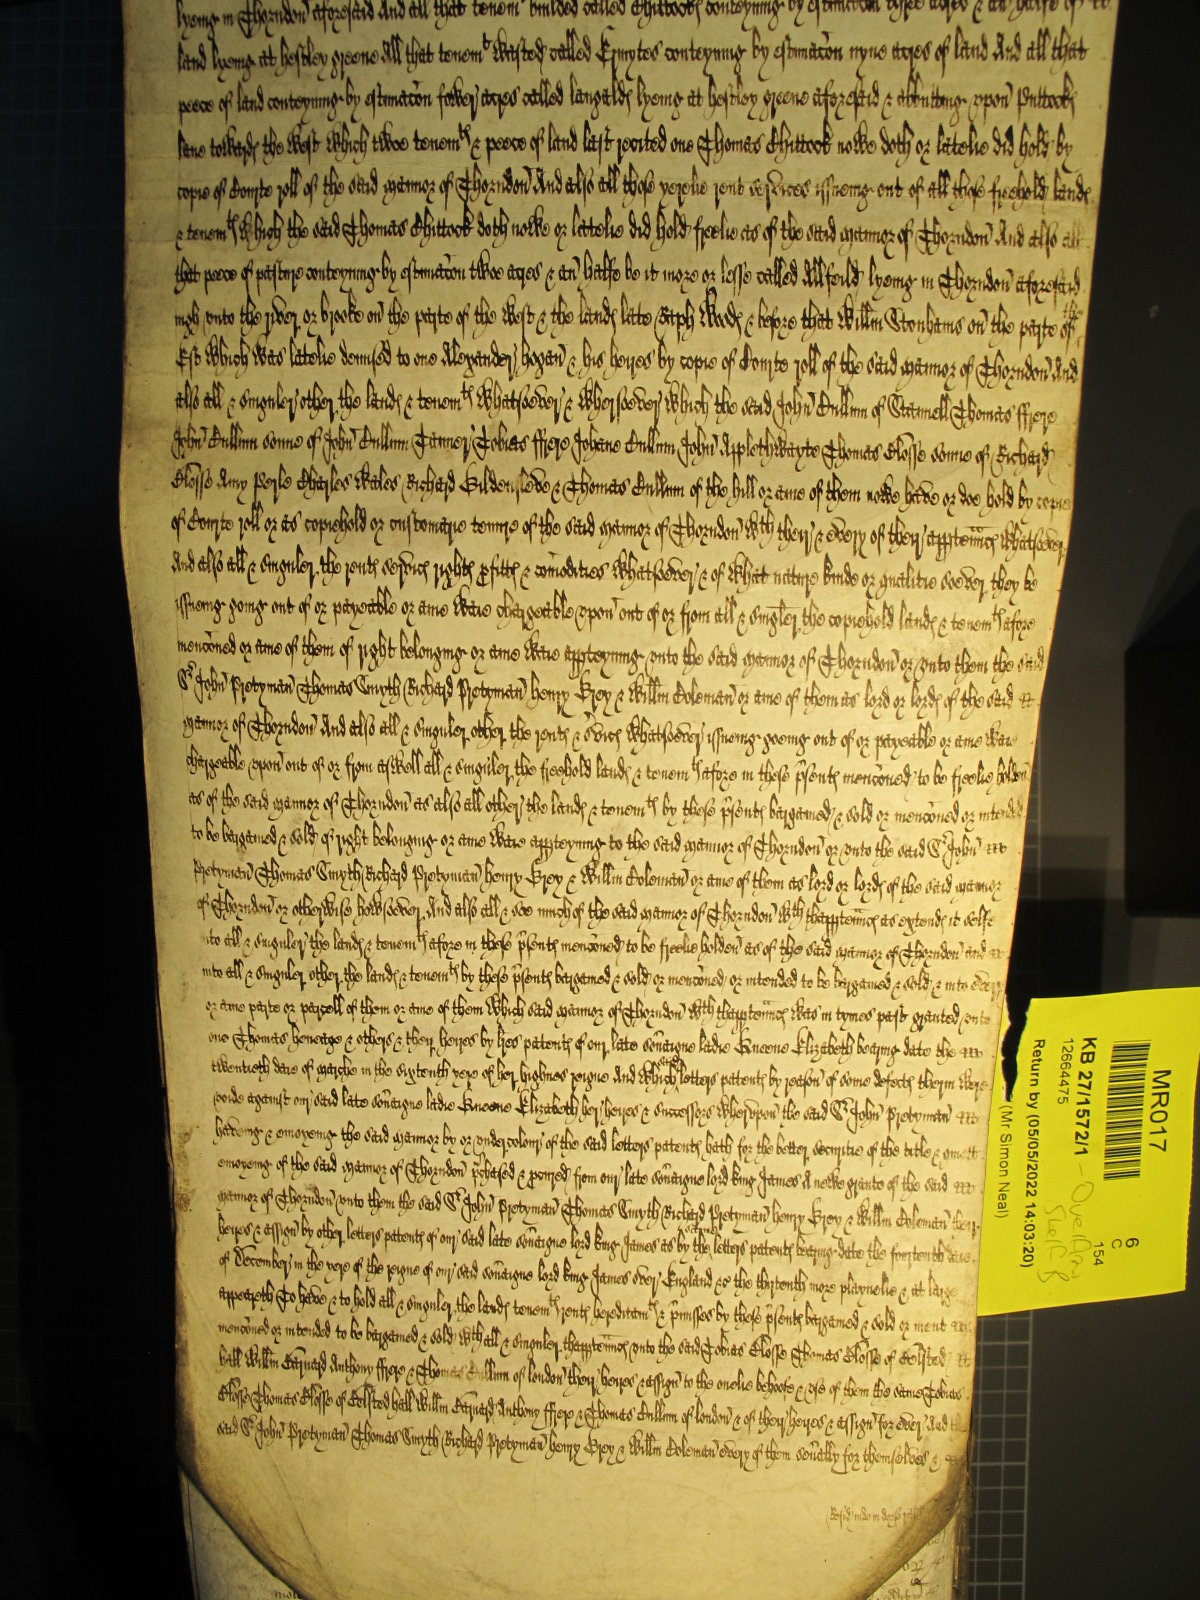 lyeing in Thorndon aforesaid And all that tenemt builded called Chittocks conteyning by estimacon three acres & an halfe of
land lyeing at hestley greene All that tenemt wasted called Ermytes conteyning by estimacon nyne acres of land And all that
peece of land conteyning by estimacon fower acres called langalds lyeing at hestley greene aforesaid & abutting vpon Puttocks
lane towards the west which twoe tenemts & peece of land last recited one Thomas Chittock nowe doth or latelie did hold by
copie of Courte roll of the said mannor of Thorndon And also all those yerelie rent services issueing out of all those freehold lands
& tenemts which the said Thomas Chittock doth nowe or latelie did hold freelie as of the said mannor of Thorndon And also all
that peece of pasture conteyning by estimacon twoe acres & an halfe be it more or lesse called Allfeild lyeing in Thorndon aforesaid
nigh vnto the river or brooke on the parte of the west & the lands late Raph Woods & before that Willm Stonhams on the parte of the
Est which was latelie demised to one Alexander hogan & his heires by copie of Courte roll of the said mannor of Thorndon And
also all & singuler other the lands & tenemts whatsoever & wheresoever which the said John Cullum of Stannell Thomas ffrere
John Cullum sonne of John Cullum Tanner Tobias ffrere Johane Cullum John Applethwayte Thomas Closse sonne of Richard
Closse Amy Perle Charles Wales Richard Gildensleve & Thomas Cullum of the hill or anie of them nowe have or doe hold by copie
of Courte roll or as copiehold or customarie tenure of the said mannor of Thorndon wth their & every of their apptennces whatsoever
And also all & singuler the rents services rights profitts & comodities whatsoever & of what nature kinde or qualitie soever they be
issueing going out of or payeable or anie waie chargeable vpon out of or from all & singler the copiehold lands & tenemts afore
menconed or anie of them of right belonging or anie waie appteyning vnto the said mannor of Thorndon or vnto them the said
Sr John Pretyman Thomas Smyth Richard Pretyman henry Grey & Willm Coleman or anie of them as lord or lords of the said
mannor of Thorndon And also all & singuler other the rents & svices whatsoever issueing goeing out of or payeable or anie waie
chargeable vpon out of or from aswell all & singuler the freehold lands & tenemts afore in these psents menconed to be freelie holden
as of the said mannor of Thorndon as also all other the lands & tenemts by these psents bargained & sold or menconed or intended
to be bargained & sold of right belonging or anie waie appteyning to the said mannor of Thorndon or vnto the said Sr John
Pretyman Thomas Smyth Richard Pretyman henry Grey & Willm Coleman or anie of them as lord or lords of the said mannor
of Thorndon or otherwise howsoever And also all & soe much of the said mannor of Thorndon wth thapptennces as extends it selfe
into all & singuler the lands & tenemts afore in these psents menconed to be freelie holden as of the said mannor of Thorndon and
into all & singuler other the lands & tenemts by these psents bargained & sold or menconed or intended to be bargained & sold & into every
or anie parte or parcell of them or anie of them which said mannor of Thorndon wth thapptennces was in tymes past granted vnto
one Thomas heneage & others & their heires by lres patents of our late soveraigne ladie Queene Elizabeth bearing date the
twentieth daie of marche in the sixtenth yere of her highnes reigne And which said letters patents by reason of some defects therin were
voide against our said late soveraigne ladie Queene Elizabeth her heires & successors wherevpon the said Sr John Pretyman
haveing & enioyeing the said mannor by or vnder colour of the said letters patents hath for the better securitie of the title & quiett
enioyeing of the said mannor of Thorndon pchased & pcured from our late soveraigne lord king James A newe graunte of the said
mannor of Thorndon vnto them the said Sr John Pretyman Thomas Smyth Richard Pretyman henry Grey & Willm Coleman their
heires & assigns by other letters patents of our said late soveraigne lord king James as by the same letters patents bearing date the fourtenth daie
of December in the yere of the reigne of our said soveraigne lord king James over England &c the thirtenth more playnelie & at large
appeareth To have & to hold all & singuler the lands tenemts rents hereditamts & pmisses by these psents bargained & sold or ment
menconed or intended to be bargained & sold wth all & singuler thapptennces vnto the said Tobias Closse Thomas Closse of Celsted
hall Willm Barnard Anthony ffrere & Thomas Cullum of london their heires & assigns to the onelie behoofe & vse of them the same Tobias
Closse Thomas Closse of Celsted hall Willm Barnard Anthony ffrere & Thomas Cullum of london & of their heires & assigns for ever And the
said Sr John Pretyman Thomas Smyth Richard Pretyman henry Grey & Willm Coleman every of them severally for themselves &
Resid inde in dorso
MR017
KB 27/1572/1 - Oversize
Shelf B
12664475
6
C
154
Return by (05/05/2022 14:03:20)
(Mr Simon Neal)